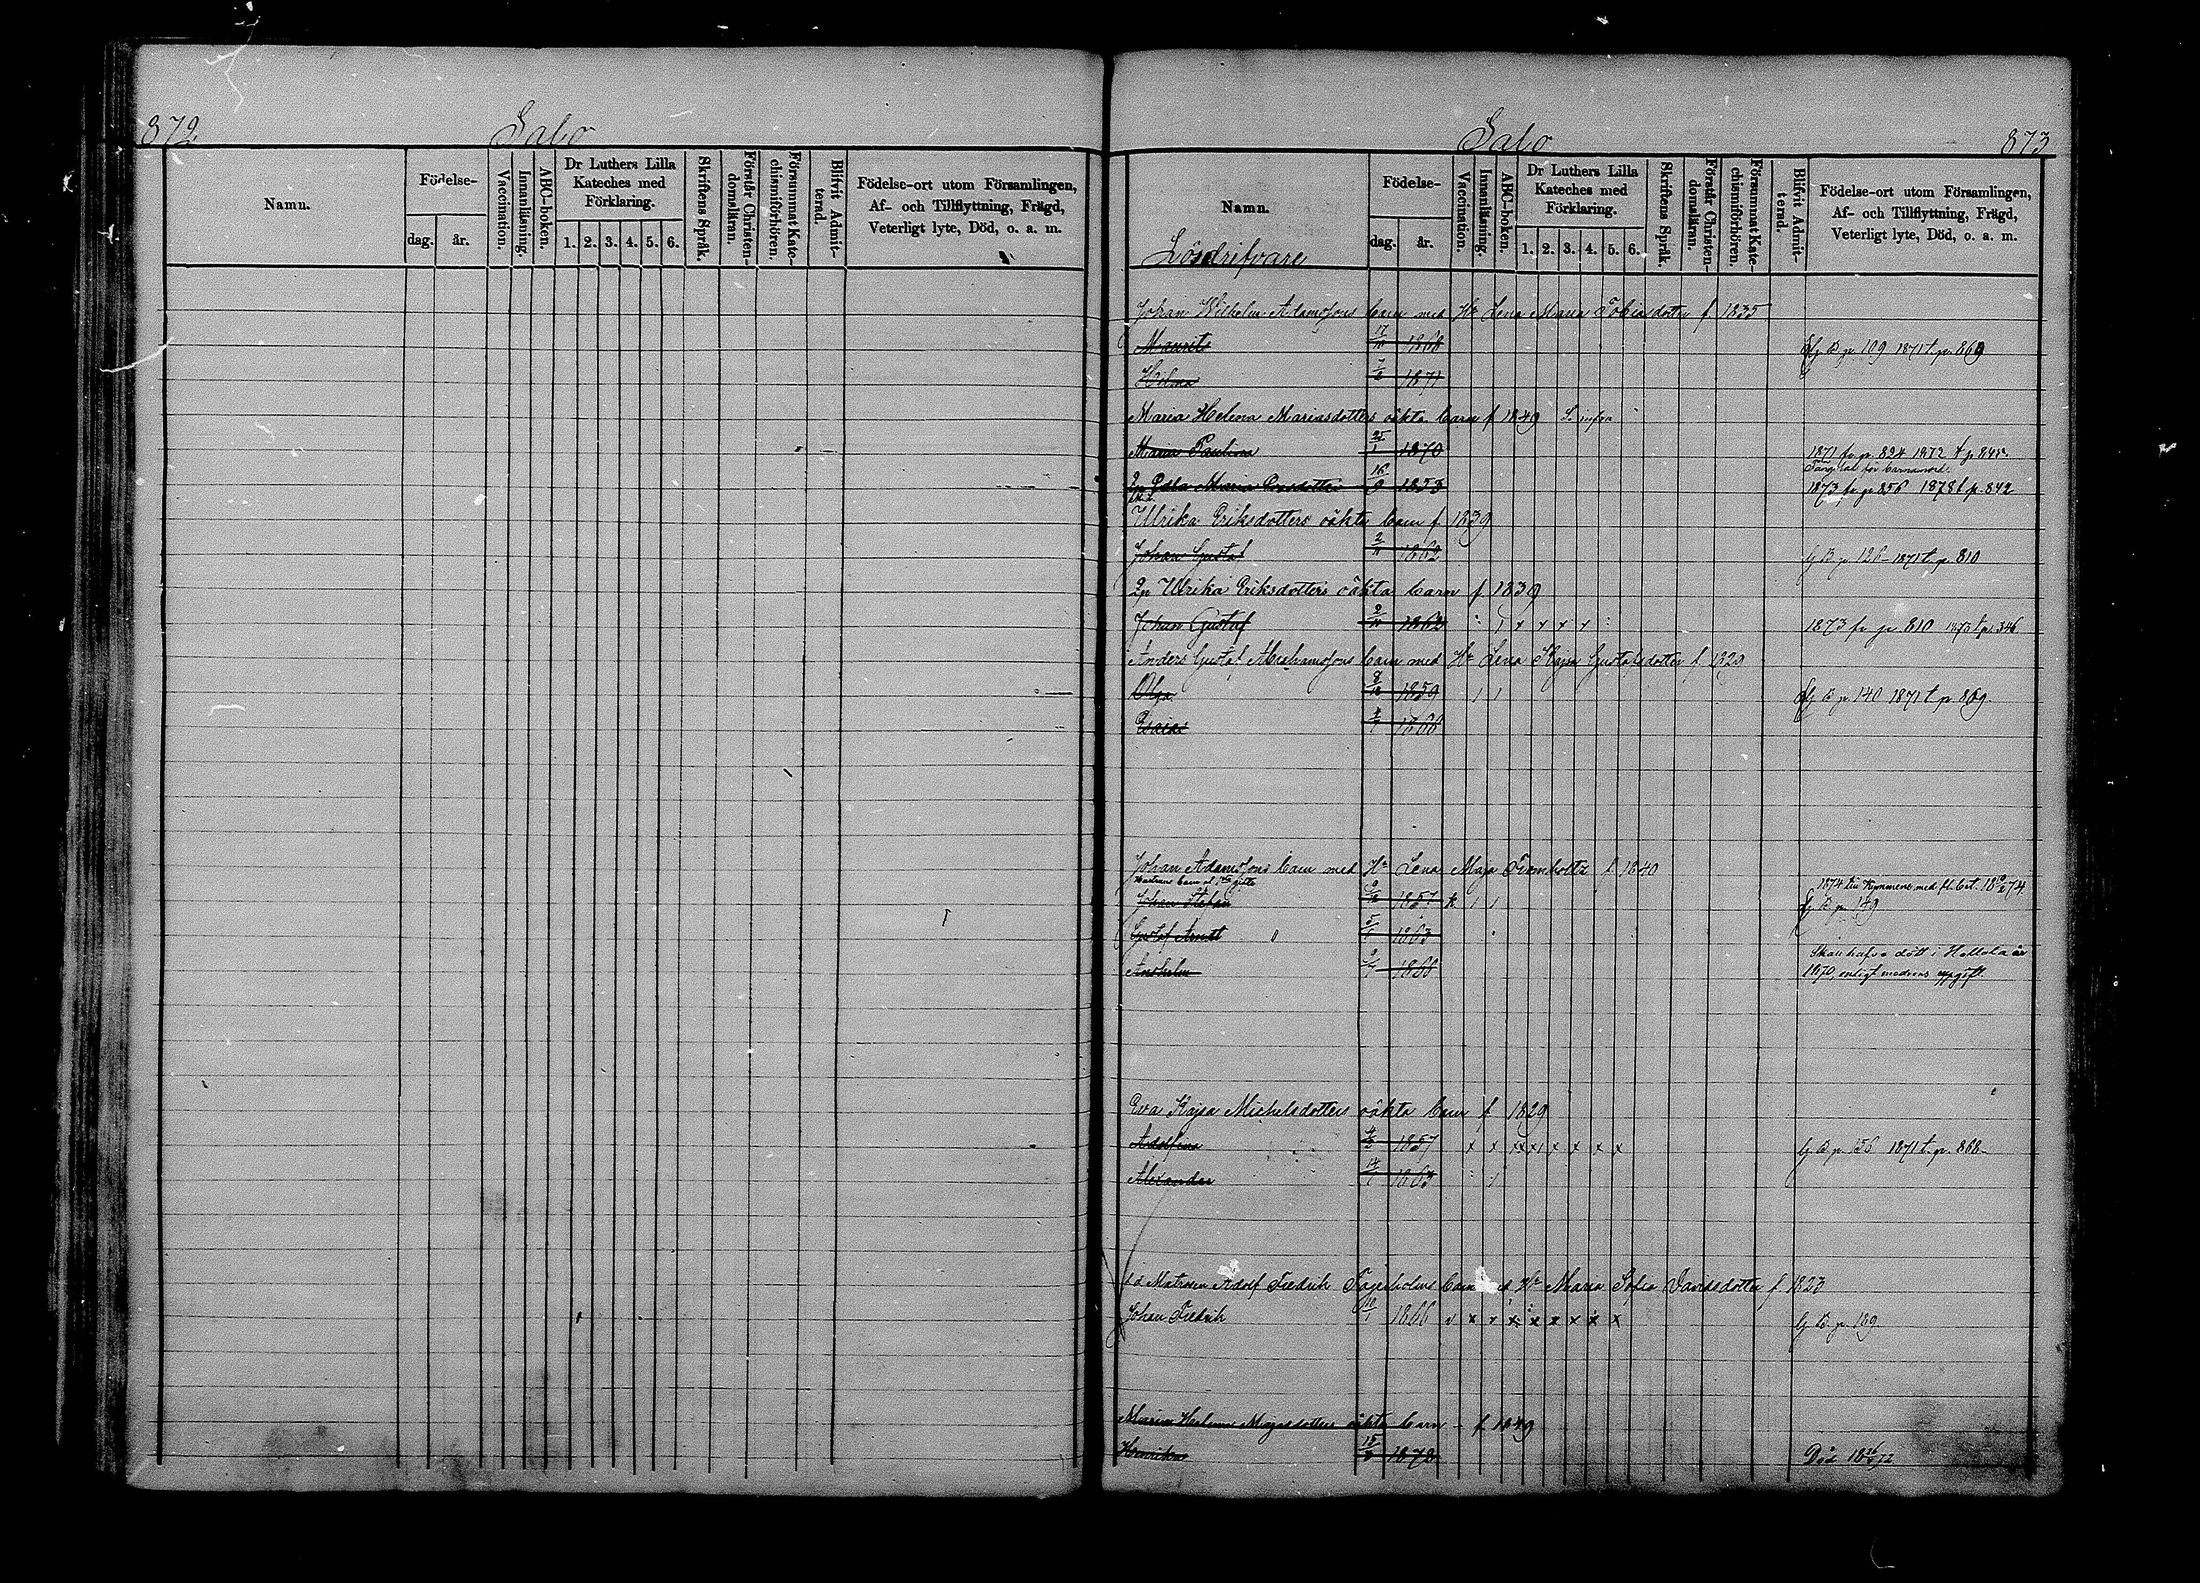 872
Salo
Namn.
Födelse-
dag.
år.
Vaccination.
Innanläsning.
ABC-boken.
Dr Luthers Lilla
Kateches med
Förklaring.
1. 2. 3. 4. 5. 6.
Skriftens Språk.
Förstår Christen-
domsläran.
Försummat Kate-
chismiförhören.
Blifvit Admit-
terad.
Födelse-ort utom Församlingen,
Af- och Tillflyttning, Frägd,
Veterligt lyte, Död, o. a. m.
Salo
873
Namn.
Lösdrifvare
Födelse-
dag.
år.
Vaccination.
Innanläsning.
ABC-boken.
Dr Luthers Lilla
Kateches med
Förklaring.
1. 2. 3. 4. 5. 6.
Skriftens Språk.
Förstår Christen-
domsläran.
Försummat Kate-
chismiförhören.
Blifvit Admit-
terad.
Födelse-ort utom Församlingen,
Af- och Tillflyttning, Frägd,
Veterligt lyte, Död, o. a. m.
Johan Wilhelm Adamssons barn med H. Lena Maria Tobiasdotter f. 1835
Maurits 1868 B p. 109 1871 t. p. 869
Hilma 1871
Maria Helena Mariasdotters oäkta barn f 1849
Maria Paulina 1870 1871 fr. p. 824 1872 t. p. 845
för barnamord.
Edla Maria 16/9 1853 1873 fr. p. 856 1878 t. p. 842
Ulrika Eriksdotters oäkta barn f. 1839
Johan Gustaf 2/11 1862 B p. 126 1871 t. p. 810
Ulrika Eriksdotters oäkta barn f. 1839
Johan Gustaf 2/11 1862 x x x x 1873 fr. p. 810 1873 t. p. 346
Anders Gustaf Abrahamssons barn med H. Lena Kajsa Gustafsdotter f. 1829
Olga 8/12 1859 B p. 140 1871 t. p. 869.
Esaias 1866
Johan Adamssons barn med H. Lena Maja Fromholtz f. 1840
Hustruns barn gifte 1874 till Kymmene med fl. bet.
Johan Stefan 1857 B p. 149
Gustaf Arndt " 5/1 1863
Anshelm 1866 Skall hafva dött i Hollola år
1870, enligt modrens uppgift.
Eva Kajsa Michelsdotters oäkta barn f. 1829
Adolfina 1857 B p. 156 1871 t. p. 868
Alexander 14/1 1863
Matrosen Adolf Fredrik Fagerholms barn med H. Maria Sofia Davidsdotter f. 1823
Johan Fredrik 10/1 1866 B p. 169
Maria Helena Majasdotters oäkta barn f 1849
Henrika 1872 Död